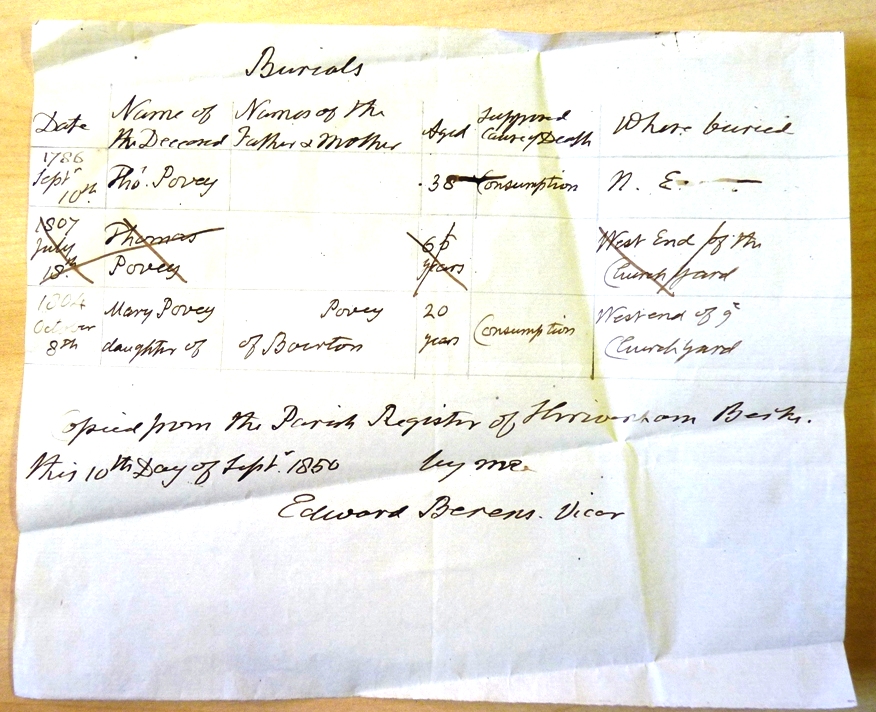 Burials
Date Name of the Deceased Names of the Father & Mother Aged Supposed Cause of Death Where buried
1786 Septr 10th. Tho. Povey 38 Consumption N. E.
1807 July 18th Thomas Povey 65 years West End of the Church Yard
1804 October 8th Mary Povey daughter of Povey of Bourton 20 years Consumption West end of ye Church Yard
Copied from the Parish Register of Shrivenham Berks.
this 10th Day of Septr. 1850 by me
Edward Berens. Vicar